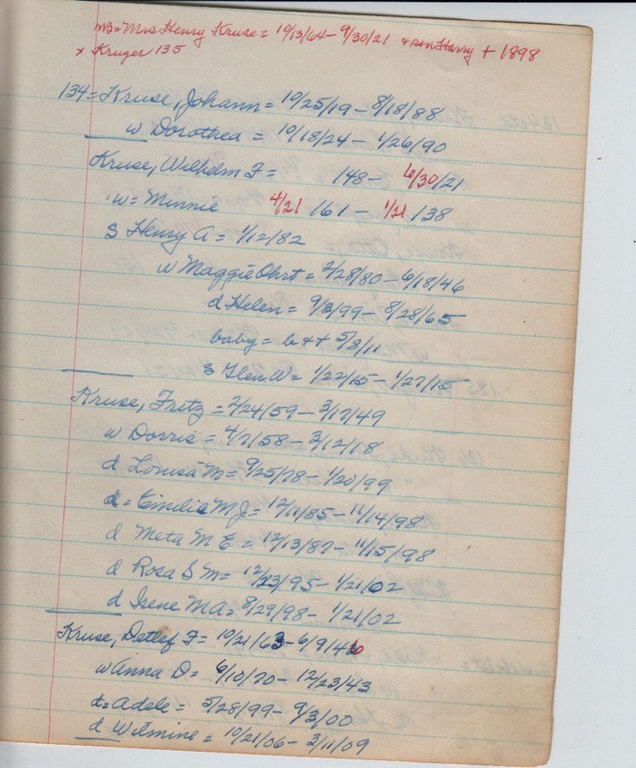 Mrs Henry Kruse = 10/13/64 - 9/30/21 & son Harry + 1898
x Kruger 135
134 = Kruse, Johann = 10/25/19 - 8/18/88
w Dorothea = 10/18/24 - 1/26/90
Kruse, Wilhelm F = 148 - 6/30/21
w = Minnie 4/21 161 - 1/21 138
s Henry A = 1/12/82
w Maggie Ohrt = 2/28/80 - 6/18/46
d Helen = 9/3/99 - 8/28/65
baby = b & + 5/8/11
s Glen W = 1/22/15 - 1/27/15
Kruse, Fritz = 2/24/59 - 3/17/49
w Dorris = 4/7/58 - 3/12/18
d Louisa M = 9/25/78 - 1/20/99
d = Emilie M J = 12/11/85 - 11/14/98
d Meta M E = 12/13/87 - 11/15/98
d Rosa S M = 12/23/95 - 1/21/02
d Irene M A = 8/29/98 - 1/21/02
Kruse, Detlef F = 10/21/63 - 6/9/40
w Anna D = 6/10/70 - 12/23/43
d = Adele = 5/28/99 - 9/3/00
d Wilmine = 10/21/06 - 3/11/09